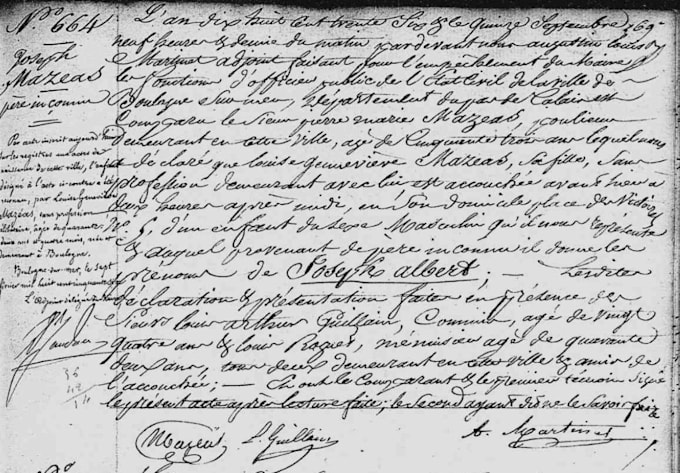 N° 664
Joseph
Mazeas
père inconnu
Par acte inscrit aujourd'hui
sur les registres aux actes de
naissance de cette ville, l'enfant
désigné à l'acte ci-contre a été
reconnu, par Louise Geneviève
Mazéas, sans profession
âgée de quarante
deux ans et quatre mois, née et
demeurant à Boulogne.
Boulogne-sur-mer, le sept
février mil huit cent cinquante
L'adjoint délégué
36
42
14
L'an dix huit cent trente six & le quinze Septembre, à
neuf heures & demie du matin, pardevant nous augustin Louis
Martinet adjoint faisant pour l'empêchement du Maire
les fonctions d'officier public de l'Etat Civil de la ville de
Boulogne sur mer, Département du pas de Calais est
Comparu le Sieur pierre marie Mazeas, poulieur
demeurant en cette ville, agé de Cinquante trois ans lequel nous
a declaré que Louise Geneviève Mazeas, Sa fille, Sans
profession demeurant avec lui est accouchée avant hier à
deux heures après midi, en Son domicile place des Victoires
N° 9, d'un enfant du sexe Masculin qu'il nous représente
& auquel provenant de père inconnu il donne les
prénoms de Joseph albert; — Lesdites
déclaration & présentation faites en présence des
Sieurs louis arthur Guillain, Commis, agé de vingt
quatre ans & louis Rogier, menuisier agé de quarante
deux ans, tous deux demeurant en cette ville & amis de
l'accouchée; — Et ont le Comparant & le premier témoin Signé
le présent acte après lecture faite, le Second ayant dit ne le Savoir faire
Mazeas L. Guillain A. Martinet